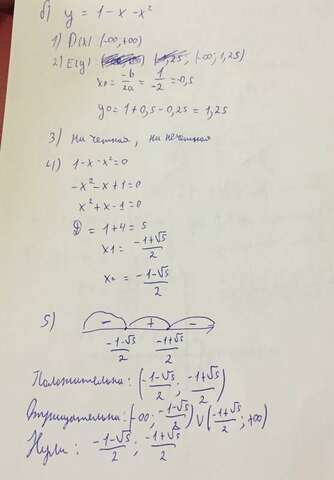 б) y = 1 - x - x²
1) D(x) (-∞; +∞)
2) E(y): (-∞; 1,25)
x₀ = -b/2a = 1/-2 = -0,5
y₀ = 1 + 0,5 - 0,25 = 1,25
3) ни четная, ни нечетная
4) 1 - x - x² = 0
-x² - x + 1 = 0
x² + x - 1 = 0
D = 1 + 4 = 5
x1 = (-1+√5)/2
x2 = (-1-√5)/2
5) - + -
(-1-√5)/2 (-1+√5)/2
Положительна: ((-1-√5)/2; (-1+√5)/2)
Отрицательна: (-∞; (-1-√5)/2) ∪ ((-1+√5)/2; +∞)
Нули: (-1-√5)/2; (-1+√5)/2